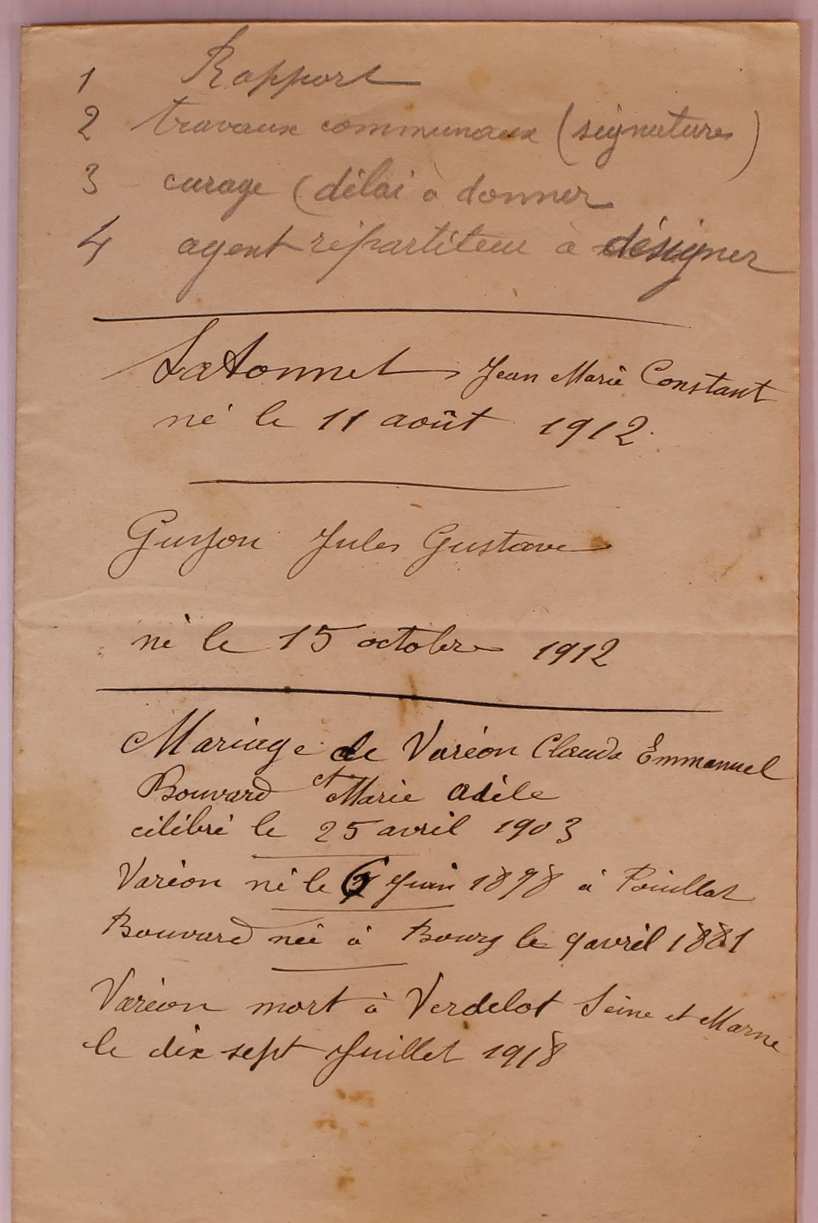 1 Rapport
2 travaux communaux (signatures)
3 curage (délai à donner
4 agent répartiteur à désigner
Jean Marie Constant
né le 11 août 1912.
Guyon Jules Gustave
né le 15 octobre 1912
Mariage de Varéon Claude Emmanuel
et
Bouvard Marie Adèle
célébré le 25 avril 1903
Varéon né le 6 Juin 1878 à Pouillat
Bouvard née à Bourg le 9 avril 1881
Varéon mort à Verdelot Seine et Marne
le dix sept Juillet 1918